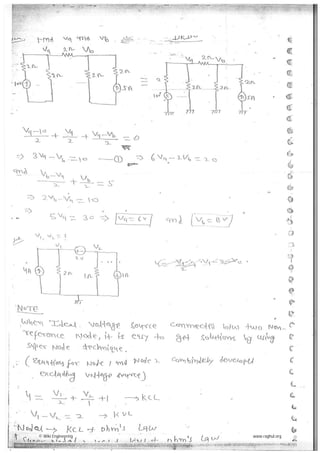 find Va and Vb
Va 2Ω Vb
Va 2Ω Vb
2Ω 2Ω 2Ω 2Ω
10V 5A
2Ω 2Ω 2Ω
10V 5A
Va-10/2 + Va/2 + Va-Vb/2 = 0
⇒ 3Va - Vb = 10 —① ⇒ 6Va - 2Vb = 20
and Vb-Va/2 + Vb/2 = 5
⇒ 2Vb - Va = 10
⇒ 5Va = 30 ⇒ Va = 6V and Vb = 8V
V1, V2 = ?
V1 V2
4A 2Ω 1Ω 1A
NOTE
When Ideal voltage source connected b/w two Non-
reference Node, it is easy to get solutions by using
super Node technique.
(Equation for Node 1 and Node 2 combinedly developed
excluding voltage source)
4 = V1/2 + V2/1 + 1 → KCL
V1 - V2 = 2 → KVL
Nodal → KCL + ohm's Law
© Wiki Engineering
www.raghul.org
2